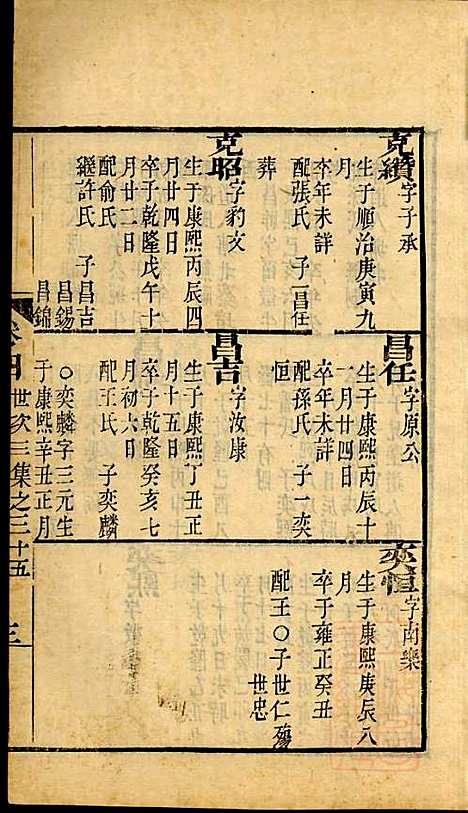 克纘字子承
生于順治庚寅九
月
卒年未詳
配張氏 子一昌任
葬
克昭字豹文
生于康熙丙辰四
月廿四日
卒于乾隆戊午十
月廿二日
配俞氏 子昌吉
繼許氏
昌錫
昌錦
昌任字原公
生于康熙丙辰十
一月廿四日
卒年未詳
配孫氏 子一奕
恒
昌吉字汝康
生于康熙丁丑正
月十五日
卒于乾隆癸亥七
月初六日
配王氏 子奕麟
○奕麟字三元生
于康熙辛丑正月
奕恒字南樂
生于康熙庚辰八
月
卒于雍正癸丑
配王○子世仁殤
世忠
世次三集之三十五
三